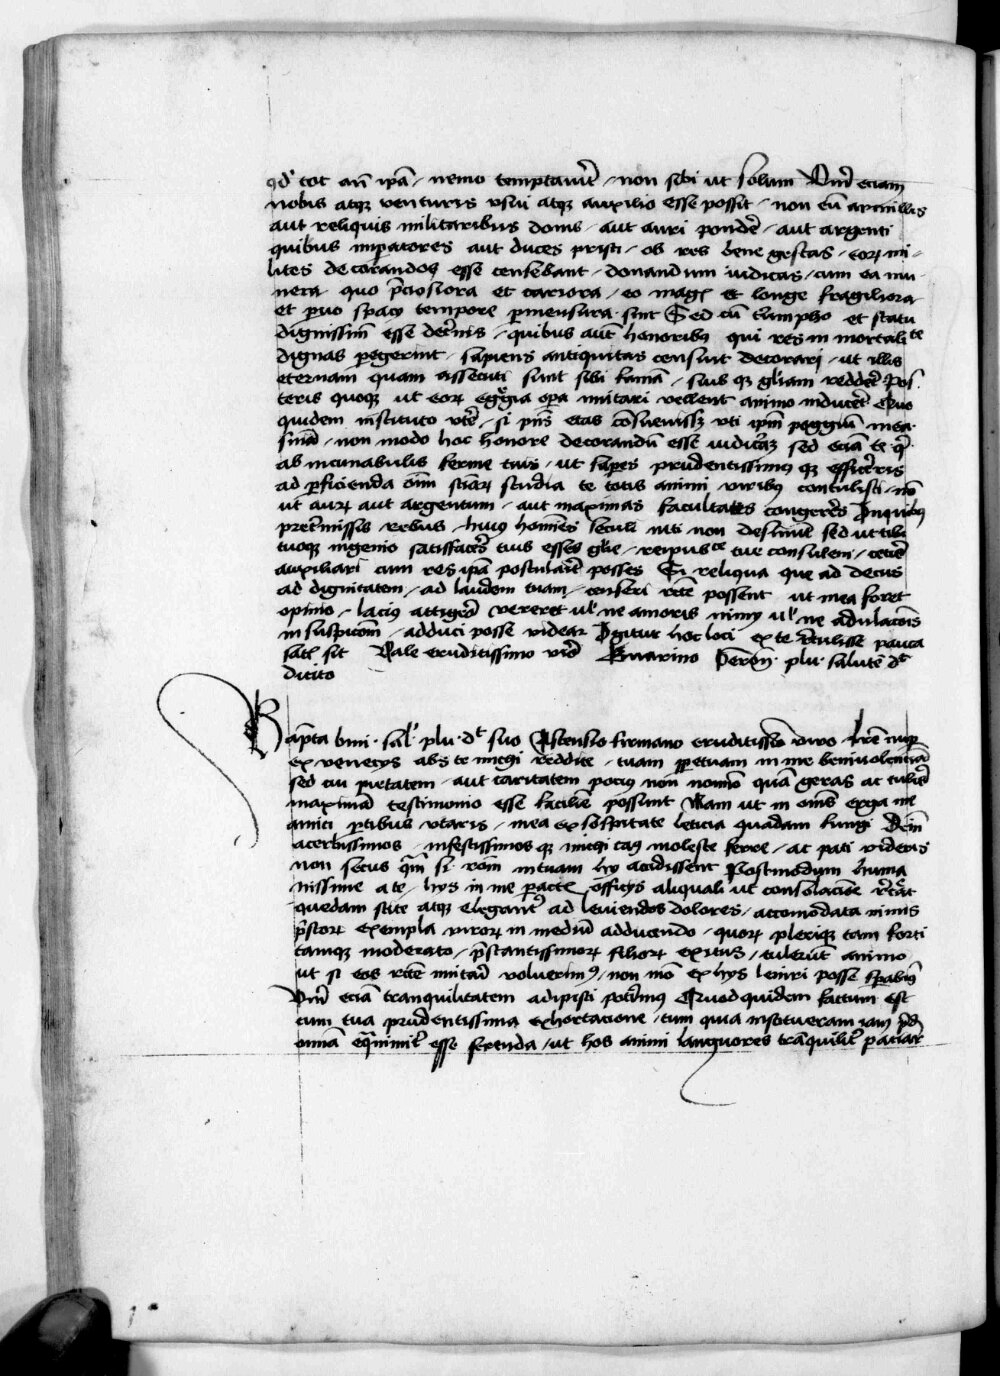 qd' tot ani ipā / nemo temptauit / non sibi ut solum Qui eciam
nobis atqꝫ venturis usui atqꝫ auxilio esse possit / non eū armillis
aut reliquis militaribus donis / aut auri ponde / aut argenti
quibus imp̄atores aut duces pristi / ob res bene gestas / eoꝝ mi-
lites decorandos esse censebant / donandum iudicas / cum ea mu-
nera quo p̄ciosiora et cariora / eo magꝭ et longe fragiliora
et paruo spacy tempore permensura sint Sed cū triumpho et statu
dignissim̄ esse dec̄nis / quibus aut̄ honoribus qui res in mortalite
dignas pegerint / sapiens antiquitas censuit decorari / ut illis
eternam quam assecuti sunt sibi famā / suis qꝫ gl'iam redde' Pos
teris quoqꝫ ut eoꝝ egregia opa imitari vellent animo induce' Quo
quidem instituto ute' / si pn̄s etas consueuissꝫ uti ipm̄ poggiū mea
sn̄ia / non modo hoc honore decorandū esse iudicaꝫ sed eciā te q̄
ab incunabulis ferme tuis / ut sapiēs prudentissimusqꝫ effice'ris
ad perficienda om̄ sciaꝝ studia te totis animi viribus contulisti / no
ut auꝝ aut argentum / aut maximas facultates congere's In quibus
pret'missis rebus / huius homines seculi niti non desinūt sed ut tibi
tuoqꝫ ingenio satisface's tuis esses gl'ie / reipubce tue consulem / cetēr
auxiliari cum res ipa postularet posses Et reliqua que ad decus
ad dignitatem / ad laudem tuam / conferi recte possent ut mea foret
opinio / lacius attigero verere' ul' ne amoris nimy ul' ne adulacōis
in suspicōm / adduci posse videar Igitur hoc loci ex te retulisse pauca
satꝭ sit Vale eruditissimo viro Guarino Veron̄ plu salutē dt
dicito
Bap̄ta bnn sal' plu dt suo Astensio firmano eruditissō viro Lre nup
ex venecys abs te michi reddite / tuam perpetuam in me beniuolenciā
sed eu pietatem / aut caritatem pocius non nomino quā geras
maximā testimonio esse facilime possunt Nam ut in om̄s erga me
amici partibus utaris / mea ex sospitate leticia quadam fungi
acerbissimos / infestissimosqꝫ michi casus moleste ferre / ac pati videris
non secus q̄m si rem in tuam hy accidissent Postmodum huma
nissime a te / hys in me peractꝭ officys aliquali ut consolacione
quedam scite atqꝫ elegant' ad leniendos dolores / accomodata nimis
p̄stoꝝ exempla viroꝝ in mediū adducendo / quoꝝ pleriqꝫ tam forti
tamqꝫ moderato / p̄stantissimoꝝ filioꝝ exitus / tulerūt animo
ut si eos recte imitari voluerimus / non mō ex hys leniri posse sperabimus
Qui eciā tranquilitatem adipisci potimus Quod quidem factum est
tum tua prudentissima exhortacione / tum quia institueram iam
omnia equanimit' esse ferenda / ut hos animi langores traquilit' paciar